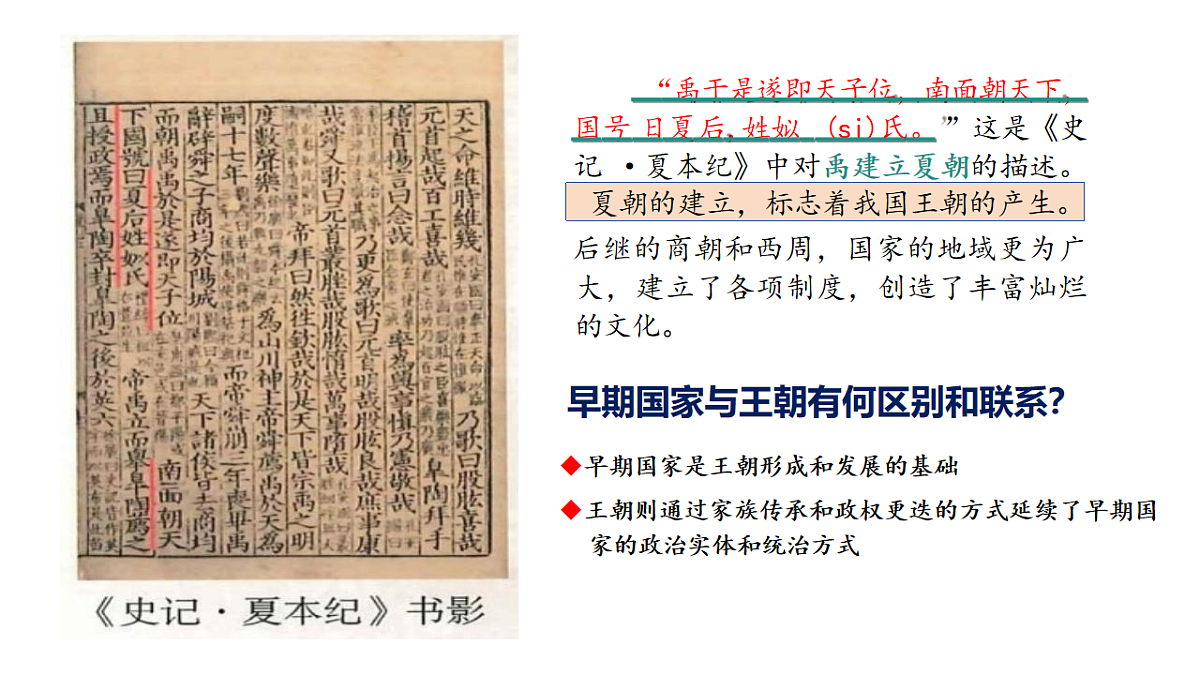 天之命維時維幾 乃歌曰股肱喜哉
元首起哉百工喜哉 皐陶拜手
稽首揚言曰念哉 率為興事慎乃憲敬哉
乃更為歌曰元首明哉股肱良哉庶事康
哉舜又歌曰元首叢脞哉股肱惰哉萬事墮哉
帝拜曰然徃欽哉於是天下皆宗禹之明
度數聲樂 為山川神主帝舜薦禹於天為
嗣十七年 而帝舜崩三年喪畢禹
辭辟舜之子商均於陽城 天下諸侯皆去商均
而朝禹禹於是遂即天子位 南面朝天
下國號曰夏后姓姒氏 帝禹立而舉皐陶薦之
且授政焉而皐陶卒封皐陶之後於英六
《史记·夏本纪》书影
“禹于是遂即天子位，南面朝天下，
国号 日夏后,姓姒 (si)氏。”” 这是《史
记 ·夏本纪》中对禹建立夏朝的描述。
夏朝的建立，标志着我国王朝的产生。
后继的商朝和西周，国家的地域更为广
大，建立了各项制度，创造了丰富灿烂
的文化。
早期国家与王朝有何区别和联系？
◆早期国家是王朝形成和发展的基础
◆王朝则通过家族传承和政权更迭的方式延续了早期国
家的政治实体和统治方式